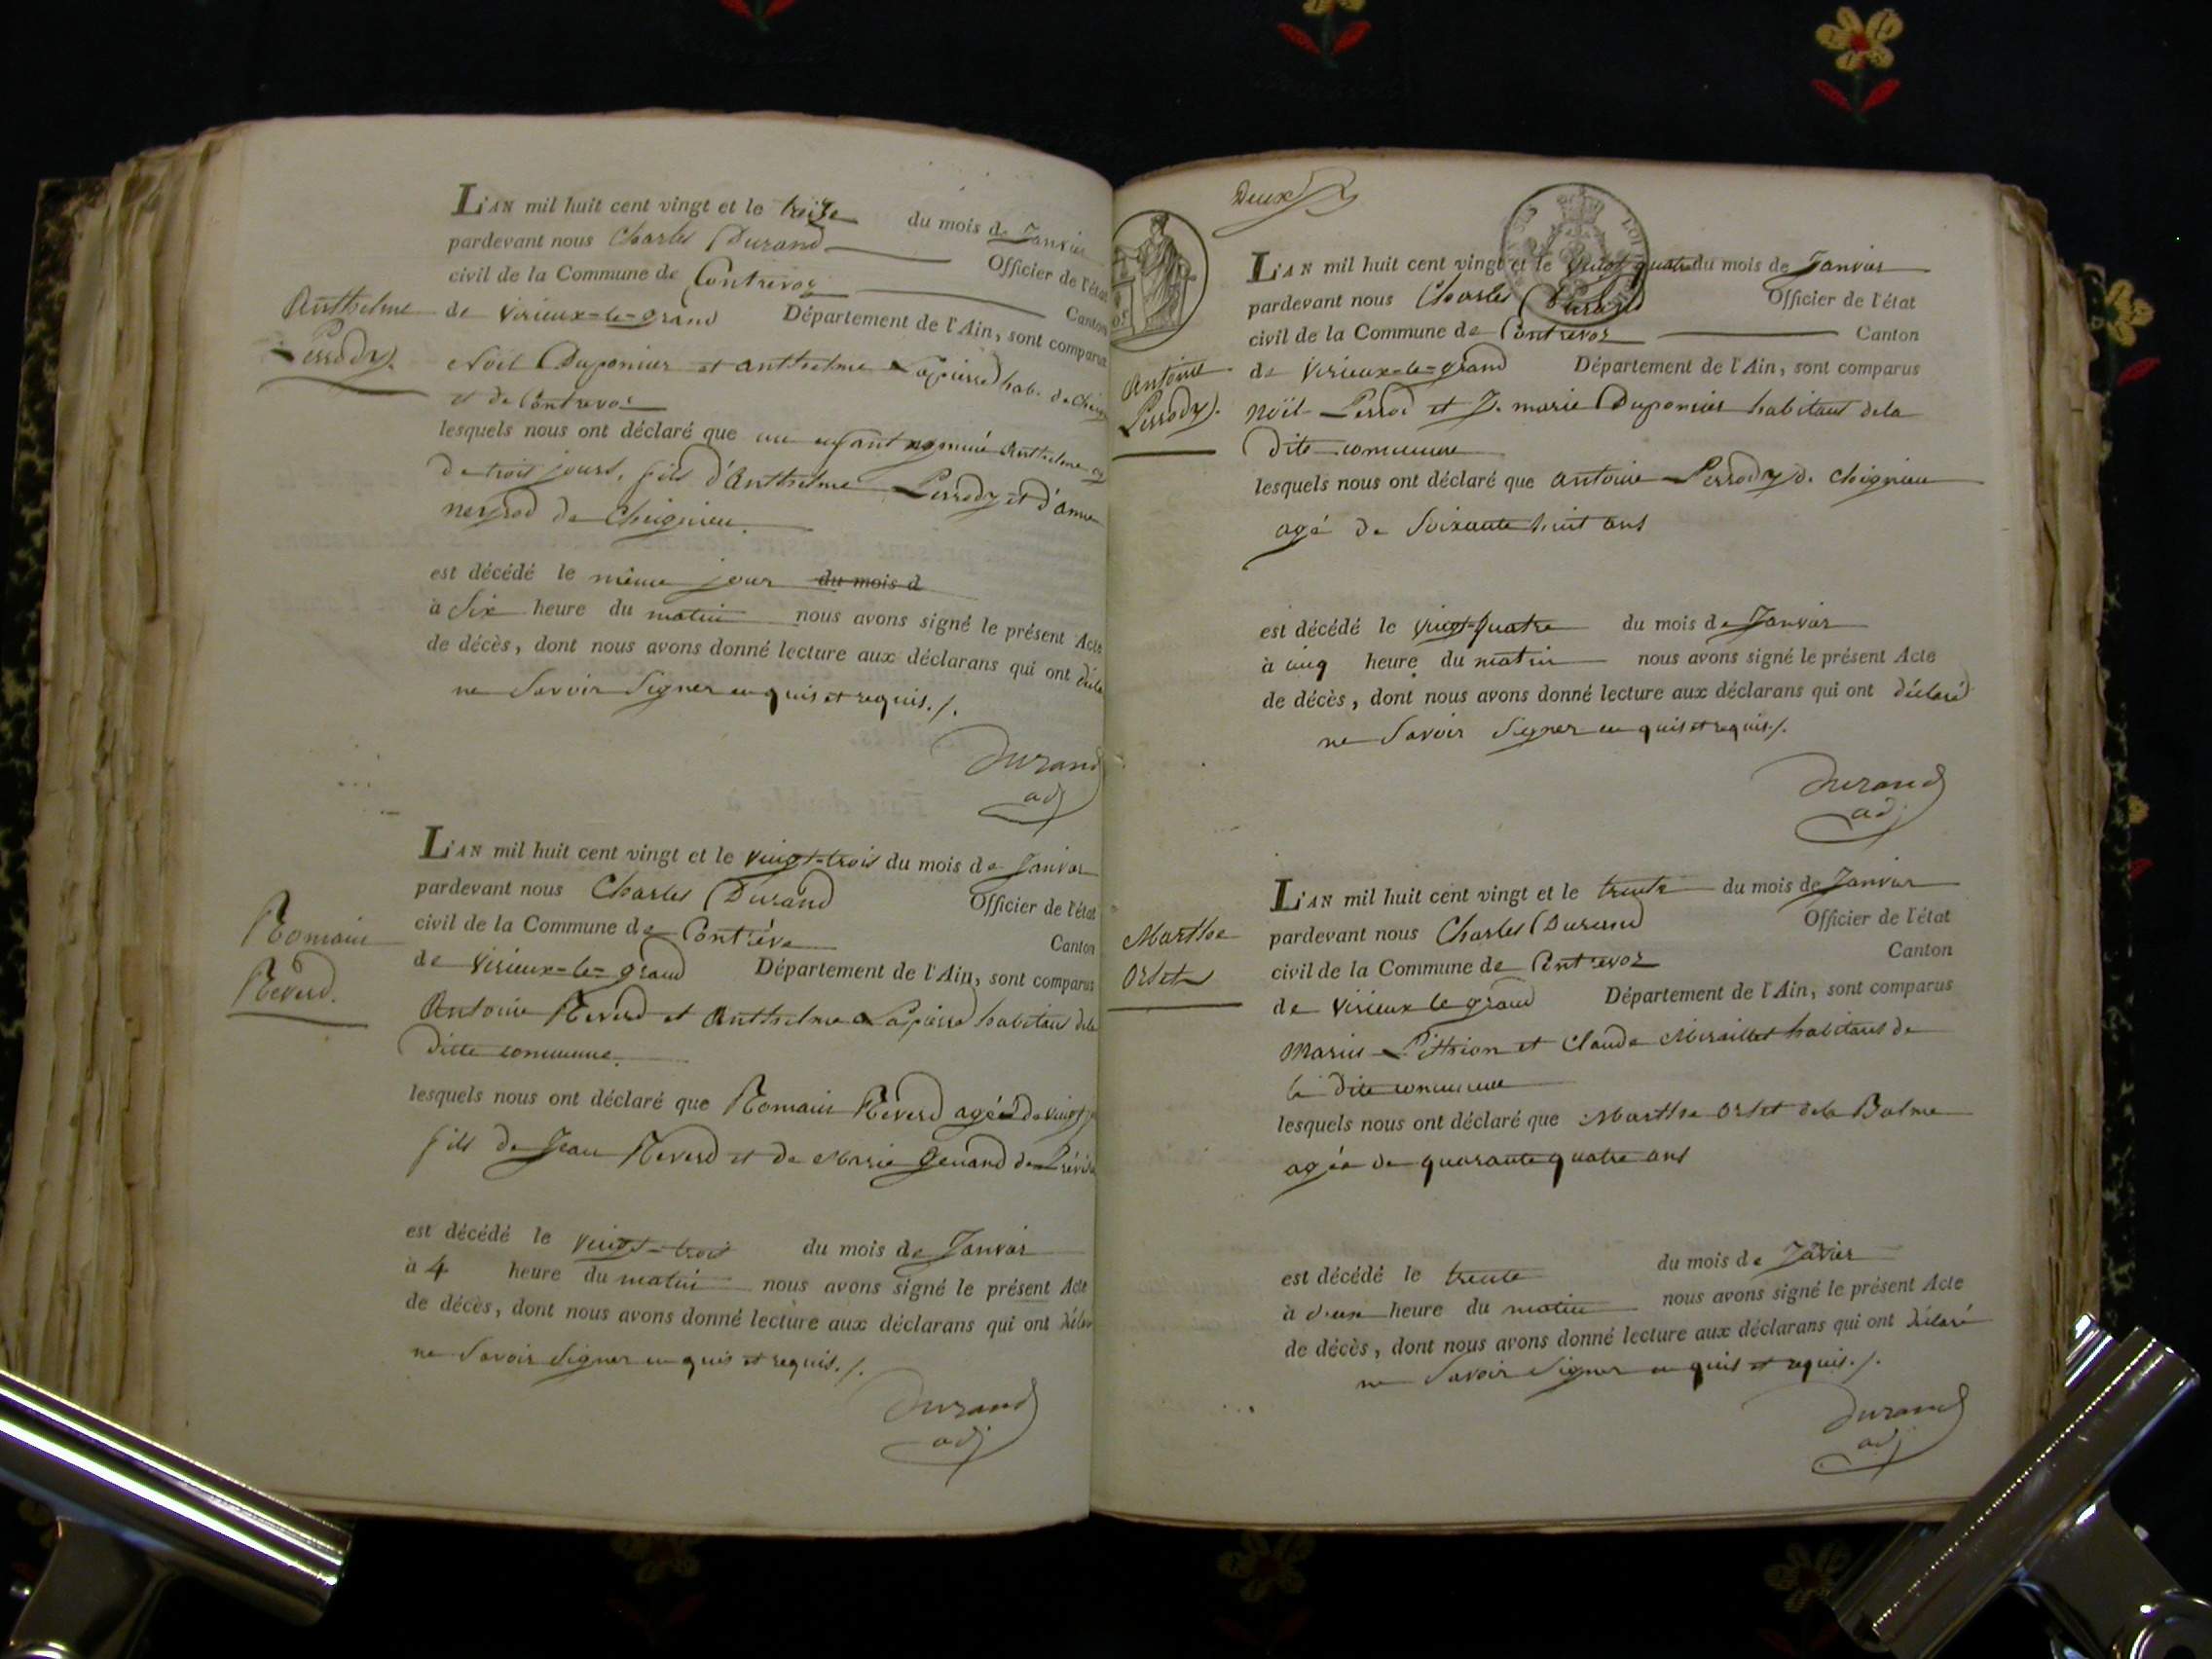 L'AN mil huit cent vingt et le treize du mois de Janvier
pardevant nous Charles Durand Officier de l'état
civil de la Commune de Contrevoz Canton
de Virieux=le=grand Département de l'Ain, sont comparus
Anthelme
Perrody.
Noël Duponier et anthelme Lapierre hab. de
et de Contrevoz
lesquels nous ont déclaré que un enfant nommé Anthelme
de trois jours, fils d'Anthelme Perrody et d'anne
de Cheignieu
est décédé le même jour du mois d
à Six heure du matin nous avons signé le présent Acte
de décès, dont nous avons donné lecture aux déclarans qui ont
ne Savoir Signer enquis et requis./.
Durand
adj
L'AN mil huit cent vingt et le vingt=trois du mois de Janvier
pardevant nous Charles Durand Officier de l'état
civil de la Commune de Canton
de Virieux=le=grand Département de l'Ain, sont comparus
Romain
Reverd.
Antoine Reverd et Anthelme Lapierre habitans dela
ditte commune
lesquels nous ont déclaré que Romain Reverd agé de vingt
fils de Jean Reverd et de Marie de
est décédé le vingt=trois du mois de Janvier
à 4 heure du matin nous avons signé le présent Acte
de décès, dont nous avons donné lecture aux déclarans qui ont
ne Savoir Signer enquis et requis./.
Durand
adj
Deux
L'AN mil huit cent vingt et le vingt quatre du mois de Janvier
pardevant nous Charles Durand Officier de l'état
civil de la Commune de Contrevoz Canton
de Virieux=le=grand Département de l'Ain, sont comparus
Antoine
Perrody.
Noël Perrod et J. marie Duponier habitans dela
dite commune
lesquels nous ont déclaré que antoine Perrody de Cheignieu
agé de Soixante huit ans
est décédé le vingt=quatre du mois de Janvier
à cinq heure du matin nous avons signé le présent Acte
de décès, dont nous avons donné lecture aux déclarans qui ont déclaré
ne Savoir Signer enquis et requis./.
Durand
adj
L'AN mil huit cent vingt et le trente du mois de Janvier
pardevant nous Charles Durand Officier de l'état
civil de la Commune de Contrevoz Canton
de Virieux le grand Département de l'Ain, sont comparus
Marthe
Orset
Marin Pittion et Claude Miraillet habitans de
la dite commune
lesquels nous ont déclaré que Marthe orset dela Balme
agée de quarante quatre ans
est décédé le trente du mois de Javier
à deux heure du matin nous avons signé le présent Acte
de décès, dont nous avons donné lecture aux déclarans qui ont déclaré
ne Savoir Signer enquis et requis./.
Durand
adj